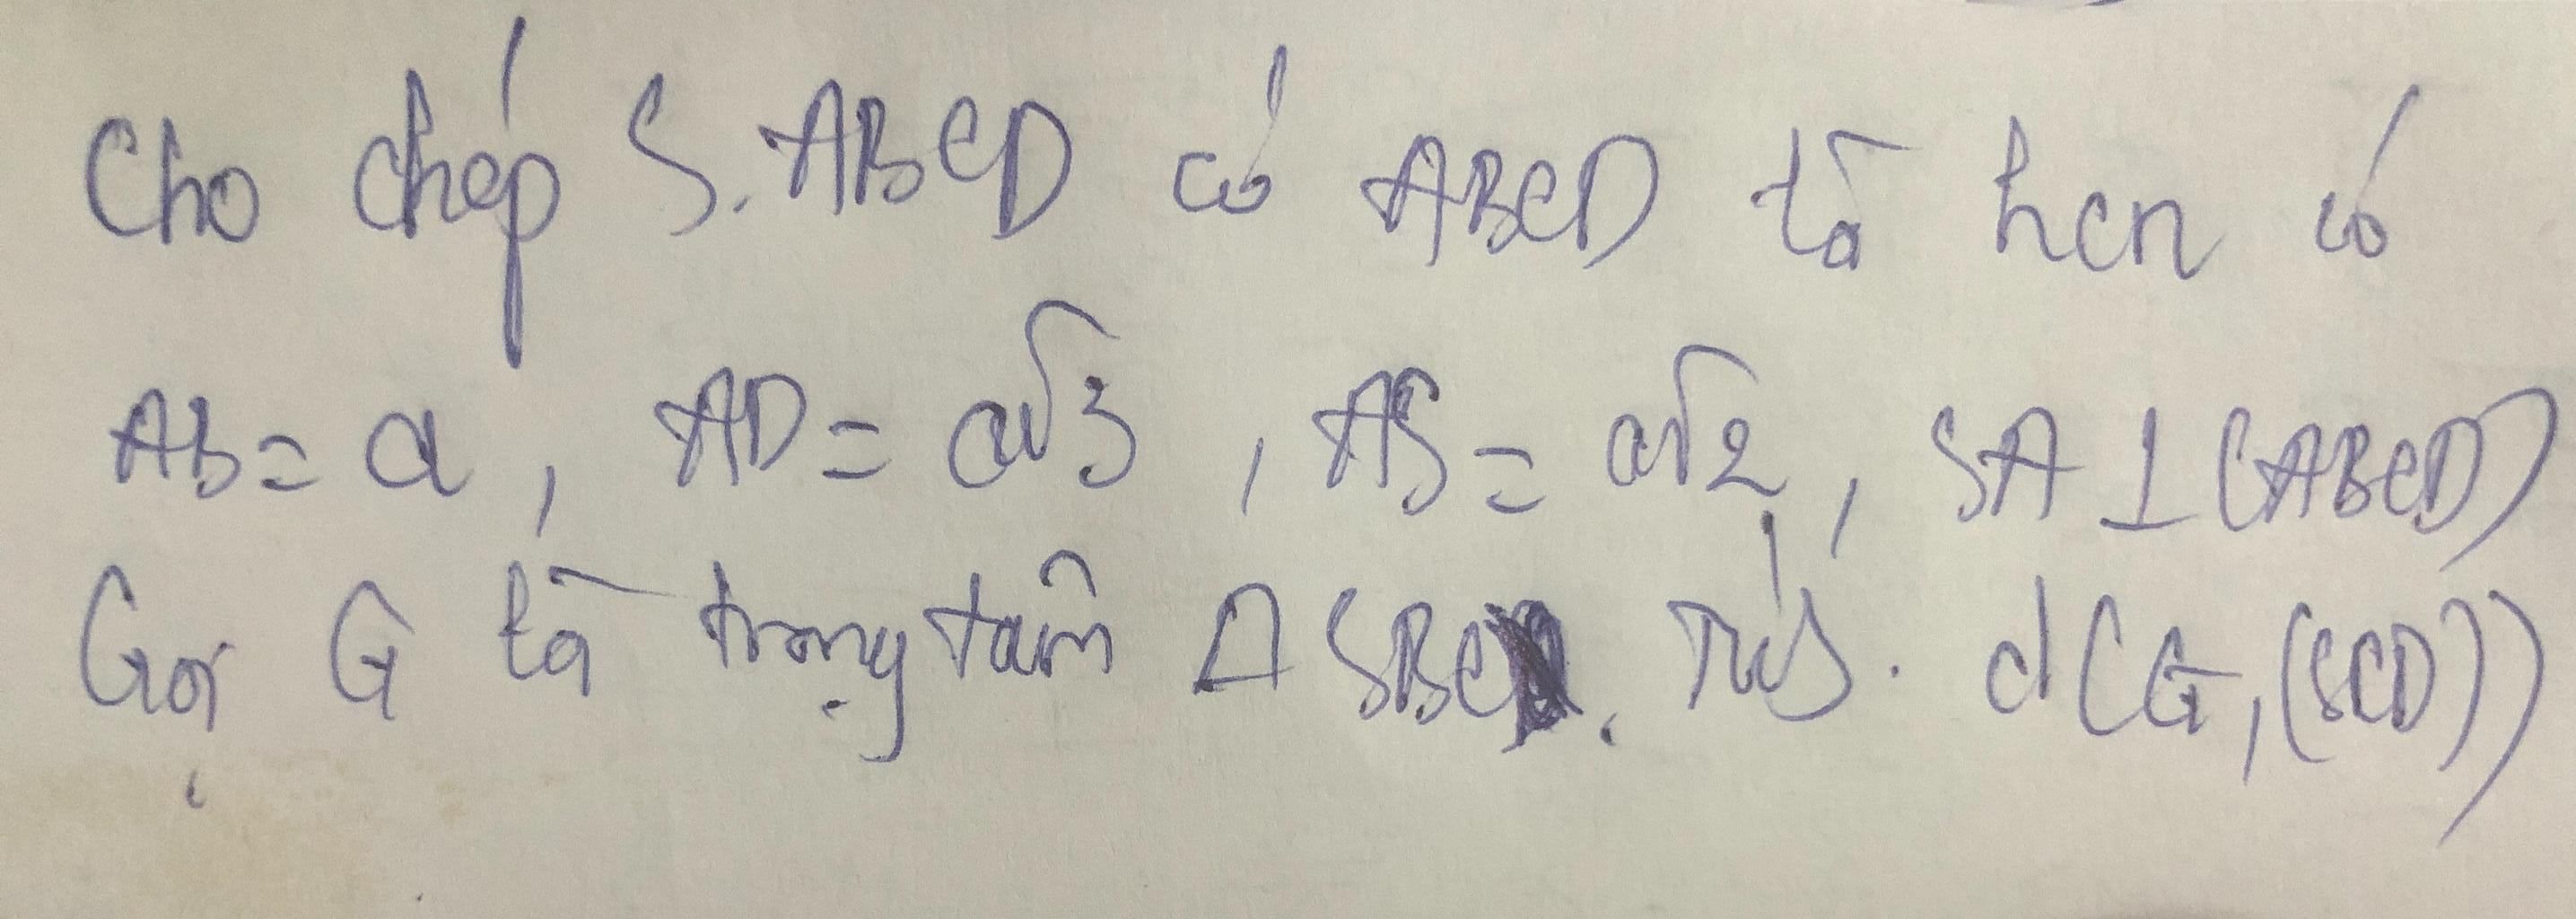 Cho chóp S.ABCD có ABCD là hcn có
AB = a, AD = a√3, AS = a√2, SA ⊥ (ABCD)
Gọi G là trọng tâm Δ SBC. Tính. d(G,(SCD))